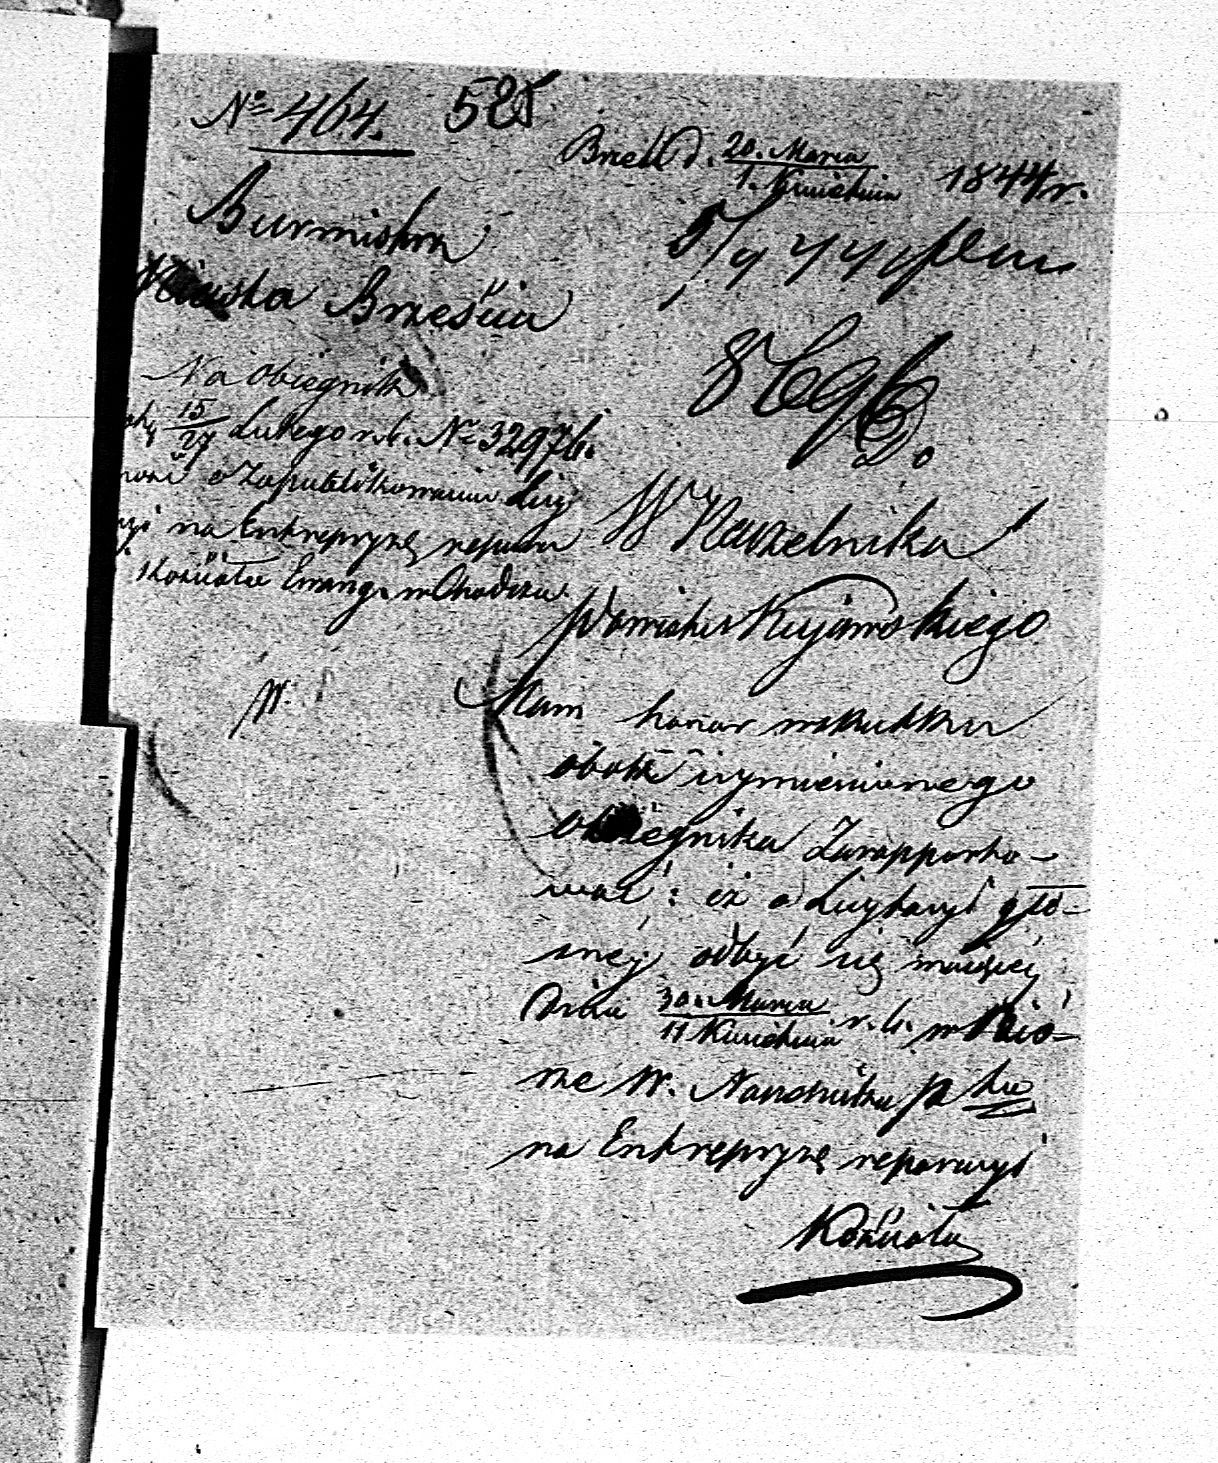 No 464. 525
Brześć d. 20. Marca / 1. Kwietnia 1844 r.
Burmistrz
Miasta Brześcia
Na obiegnik
15/27 Lutego r. b. No 3297 b.
o zapublikowaniu Licy
na Entrepryzę
Kościoła Ewang. w Chodczu
Do
W Naczelnika
Powiatu Kujawskiego
W.
Mam honor w skutku
obok wymienionego
obiegnika Zarapporto-
wać: iż o Licytacyi gło-
śnej odbyć się maiącej
Dnia 30. Marca / 11 Kwietnia r. b. w Bió-
rze W. Naczelnika Ptu
na Entrepryzę reparacyi
Kościoła